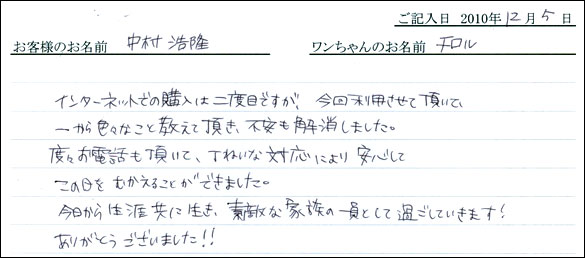 ご記入日 2010年12月5日
お客様のお名前 中村 浩隆 ワンちゃんのお名前 チロル
インターネットでの購入は二度目ですが、今回利用させて頂いて、
一から色々なこと教えて頂き、不安も解消しました。
度々お電話も頂いて、丁ねいな対応により安心して
この日をむかえることができました。
今日から生涯共に生き、素敵な家族の一員として過ごしていきます!
ありがとうございました!!